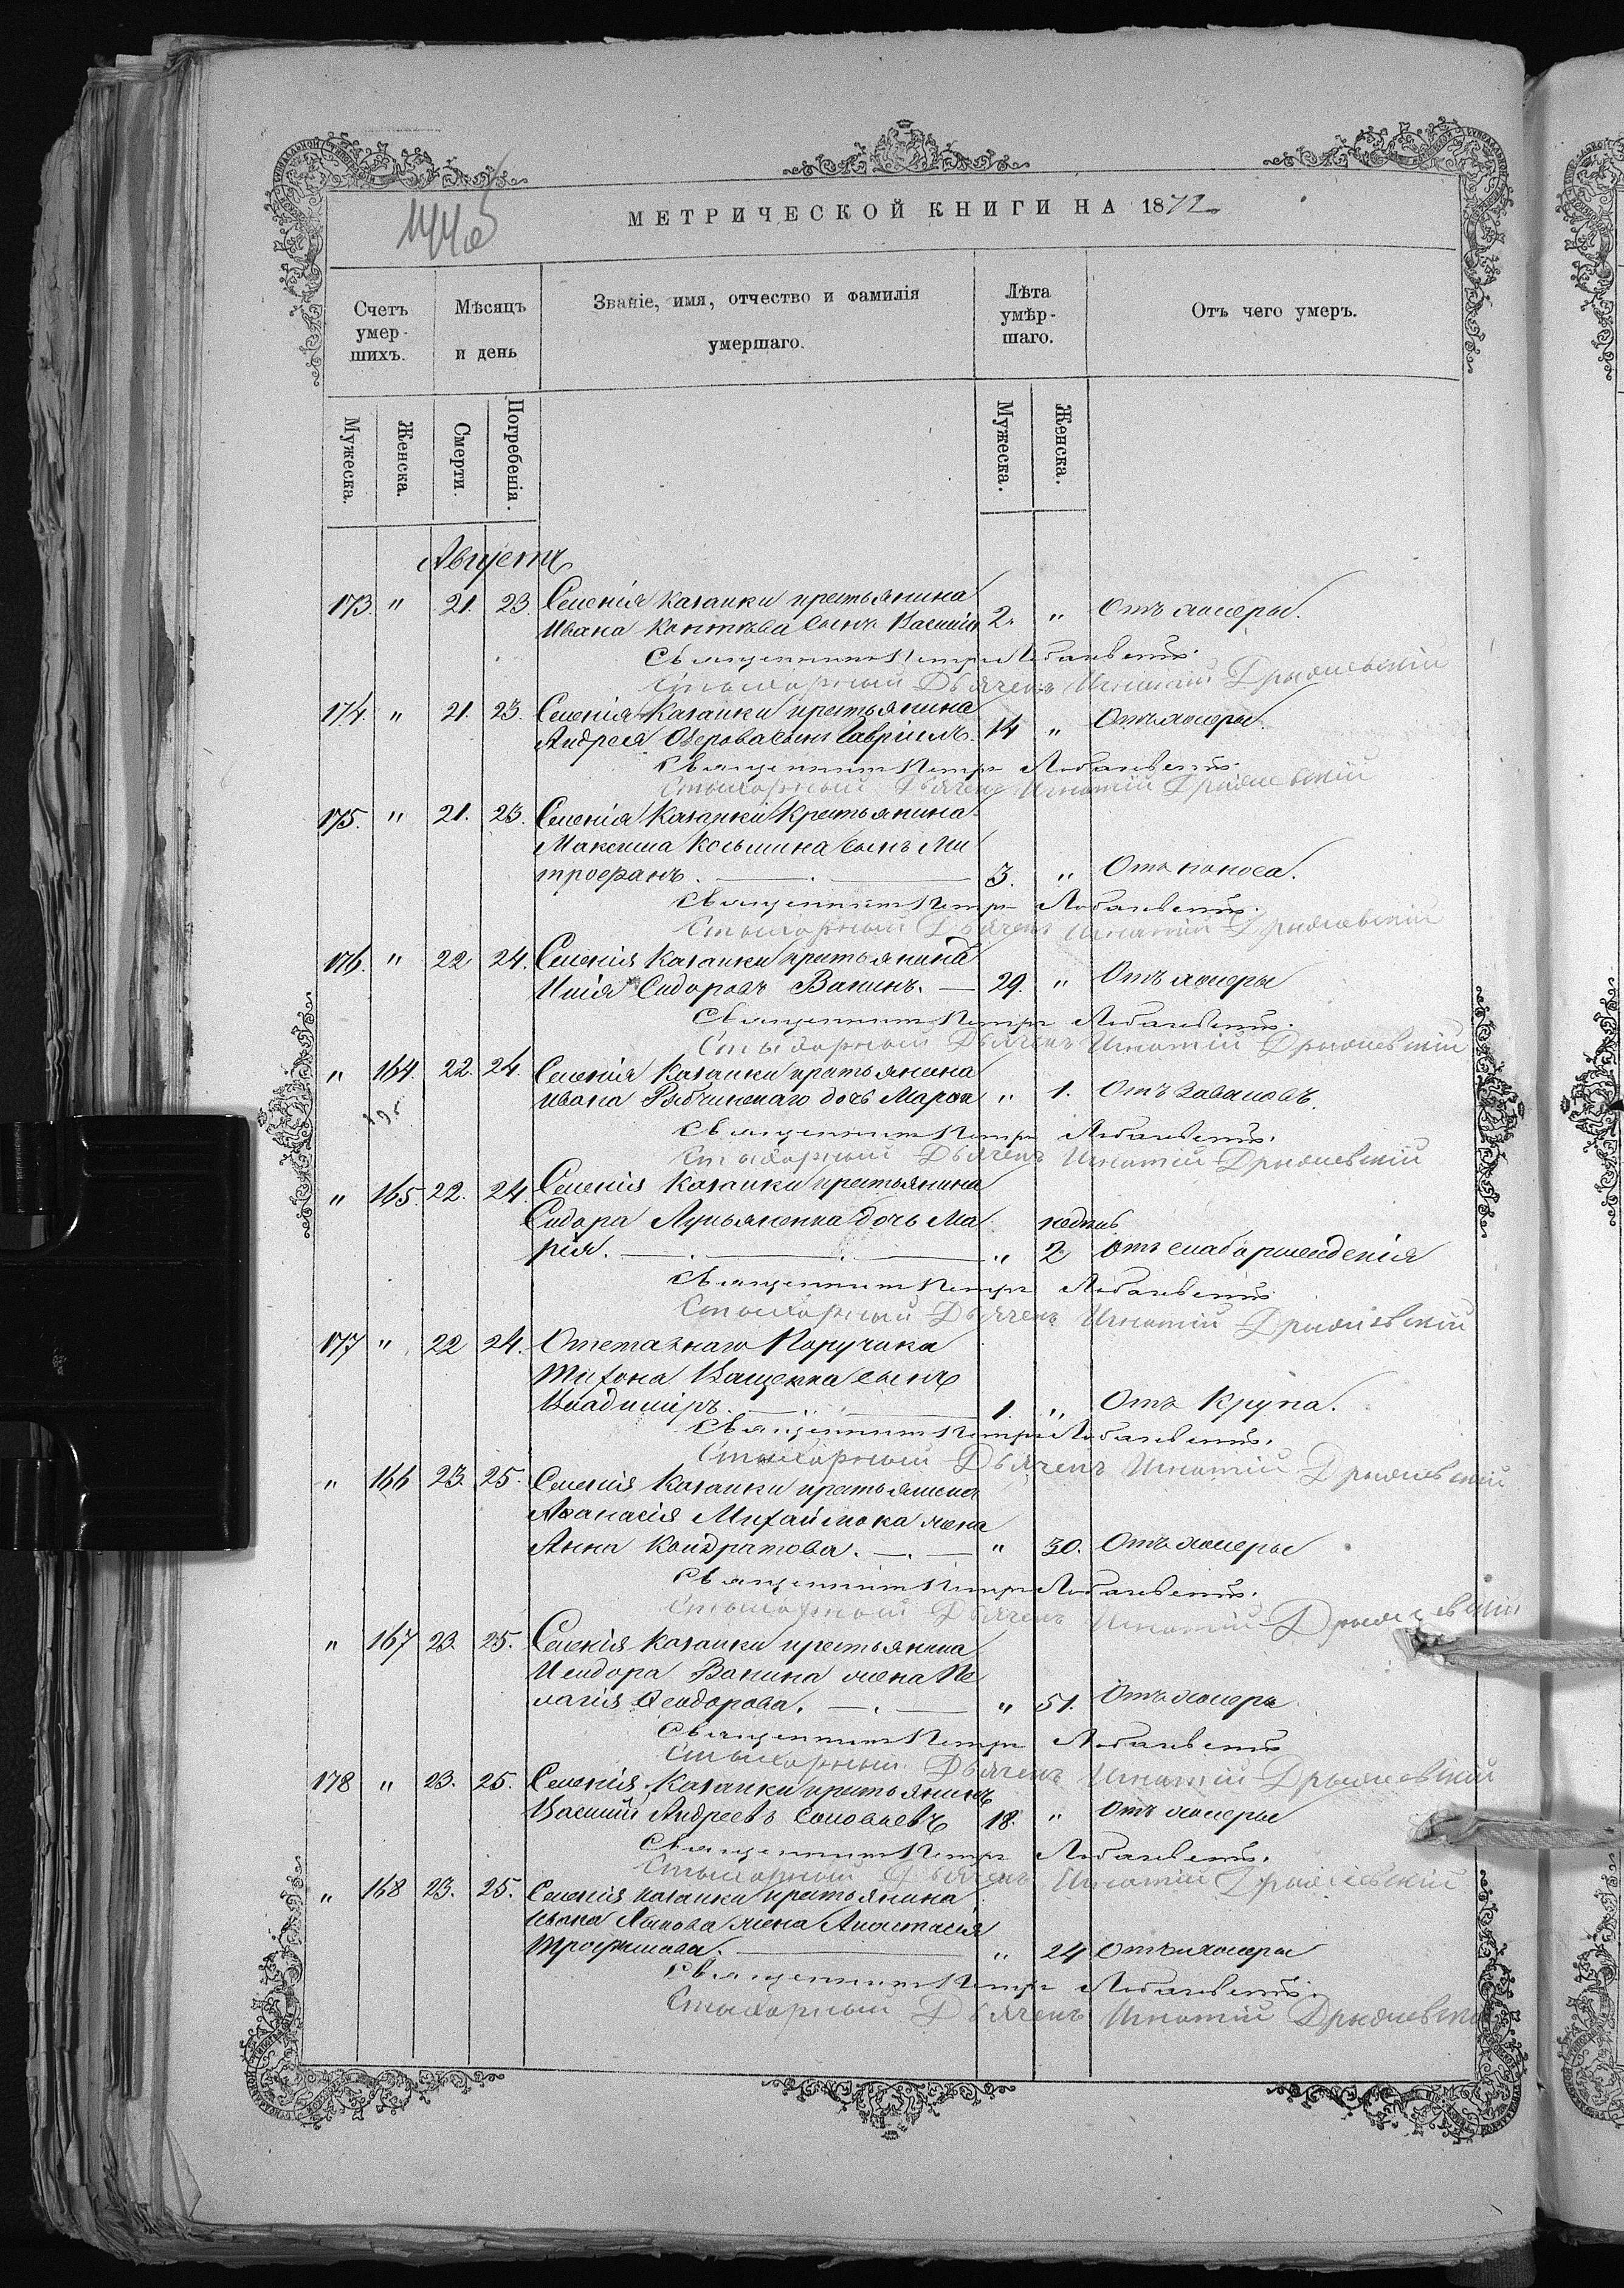 МЕТРИЧЕСКОЙ КНИГИ НА 1872
Счетъ умер-шихъ.
Мѣсяцъ и день
Званіе, имя, отчество и фамилія умершаго.
Лѣта умѣр-шаго.
Отъ чего умеръ.
Мужеска. Женска. Смерти. Погребенія. Мужеска. Женска.
Августъ
173. " 21. 23. Селенія Казанки крестьянина
Ивана сынъ Василій 2. " Отъ холеры.
Священникъ Петръ
Стихарный Дьячекъ Игнатій
174. " 21. 23. Селенія Казанки крестьянина
Андрея Озерова сынъ Гавріилъ. 14 " Отъ холеры.
Священникъ Петръ
Стихарный Дьячекъ Игнатій
175. " 21. 23. Селенія Казанки Крестьянина
Максима Косьмина сынъ Ми
трофанъ. 3. " Отъ поноса.
Священникъ Петръ
Стихарный Дьячекъ Игнатій
176. " 22 24. Селенія Казанки крестьянинъ
Илія Сидоровъ Ванинъ. 29. " Отъ холеры
Священникъ Петръ
Стихарный Дьячекъ Игнатій
" 164. 22. 24. Селенія Казанки крестьянина
Ивана дочь Марѳа " 1. Отъ заваловъ.
Священникъ Петръ
Стихарный Дьячекъ Игнатій
" 165. 22. 24. Селенія Казанки крестьянина
Сидора Лукьяненка дочь Ма недѣль
рія. " 2 отъ слаборожденія
Священникъ Петръ
Стихарный Дьячекъ Игнатій
177 " 22 24. Отставнаго Поручика
Тихона Ващенка сынъ
Владиміръ. 1. " Отъ Крупа.
Священникъ Петръ
Стихарный Дьячекъ Игнатій
" 166 23. 25. Селенія Казанки крестьянина
Аѳанасія Михайлюка жена
Анна Кондратова. " 30. Отъ холеры
Священникъ Петръ
Стихарный Дьячекъ Игнатій
" 167 23. 25. Селенія Казанки крестьянина
Исидора Ванина жена Пе
лагія Ѳеодорова. " 51. Отъ холеры
Священникъ Петръ
Стихарный Дьячекъ Игнатій
178 " 23. 25. Селенія Казанки крестьянинъ
Василій Андреевъ Соловьевъ 18. " Отъ холеры
Священникъ Петръ
Стихарный Дьячекъ Игнатій
" 168 23. 25. Селенія Казанки крестьянина
Ивана жена Анастасія
Трофимова. " 24 Отъ холеры
Священникъ Петръ
Стихарный Дьячекъ Игнатій